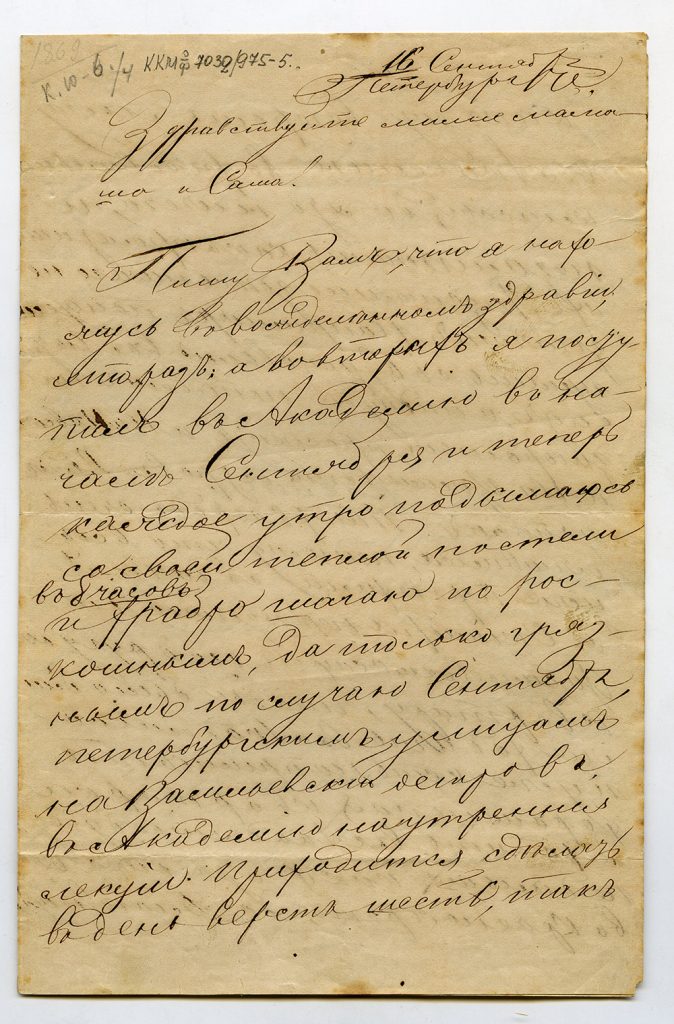 1869
К. Ю-6./4 ККМ 7032/975-5.
16 Сентябр
Петербургъ
Здравствуйте милые мама-
ша и Саша!
Пишу Вамъ, что я нахо-
жусь во вожделенномъ здравіи,
это разъ; а вовторыхъ я посту
пилъ въ Академію въ на-
чалѣ Сентября и теперь
каждое утро подымаюсь
со своей теплой постели
въ 6 часовъ
и храбро шагаю по рос-
кошнымъ, да только гряз-
нымъ по случаю Сентября,
петербургскимъ улицамъ
на Васильевскій островъ,
въ Академію на утреннія
лекціи. Приходится сдѣлать
въ день верстъ шесть, такъ